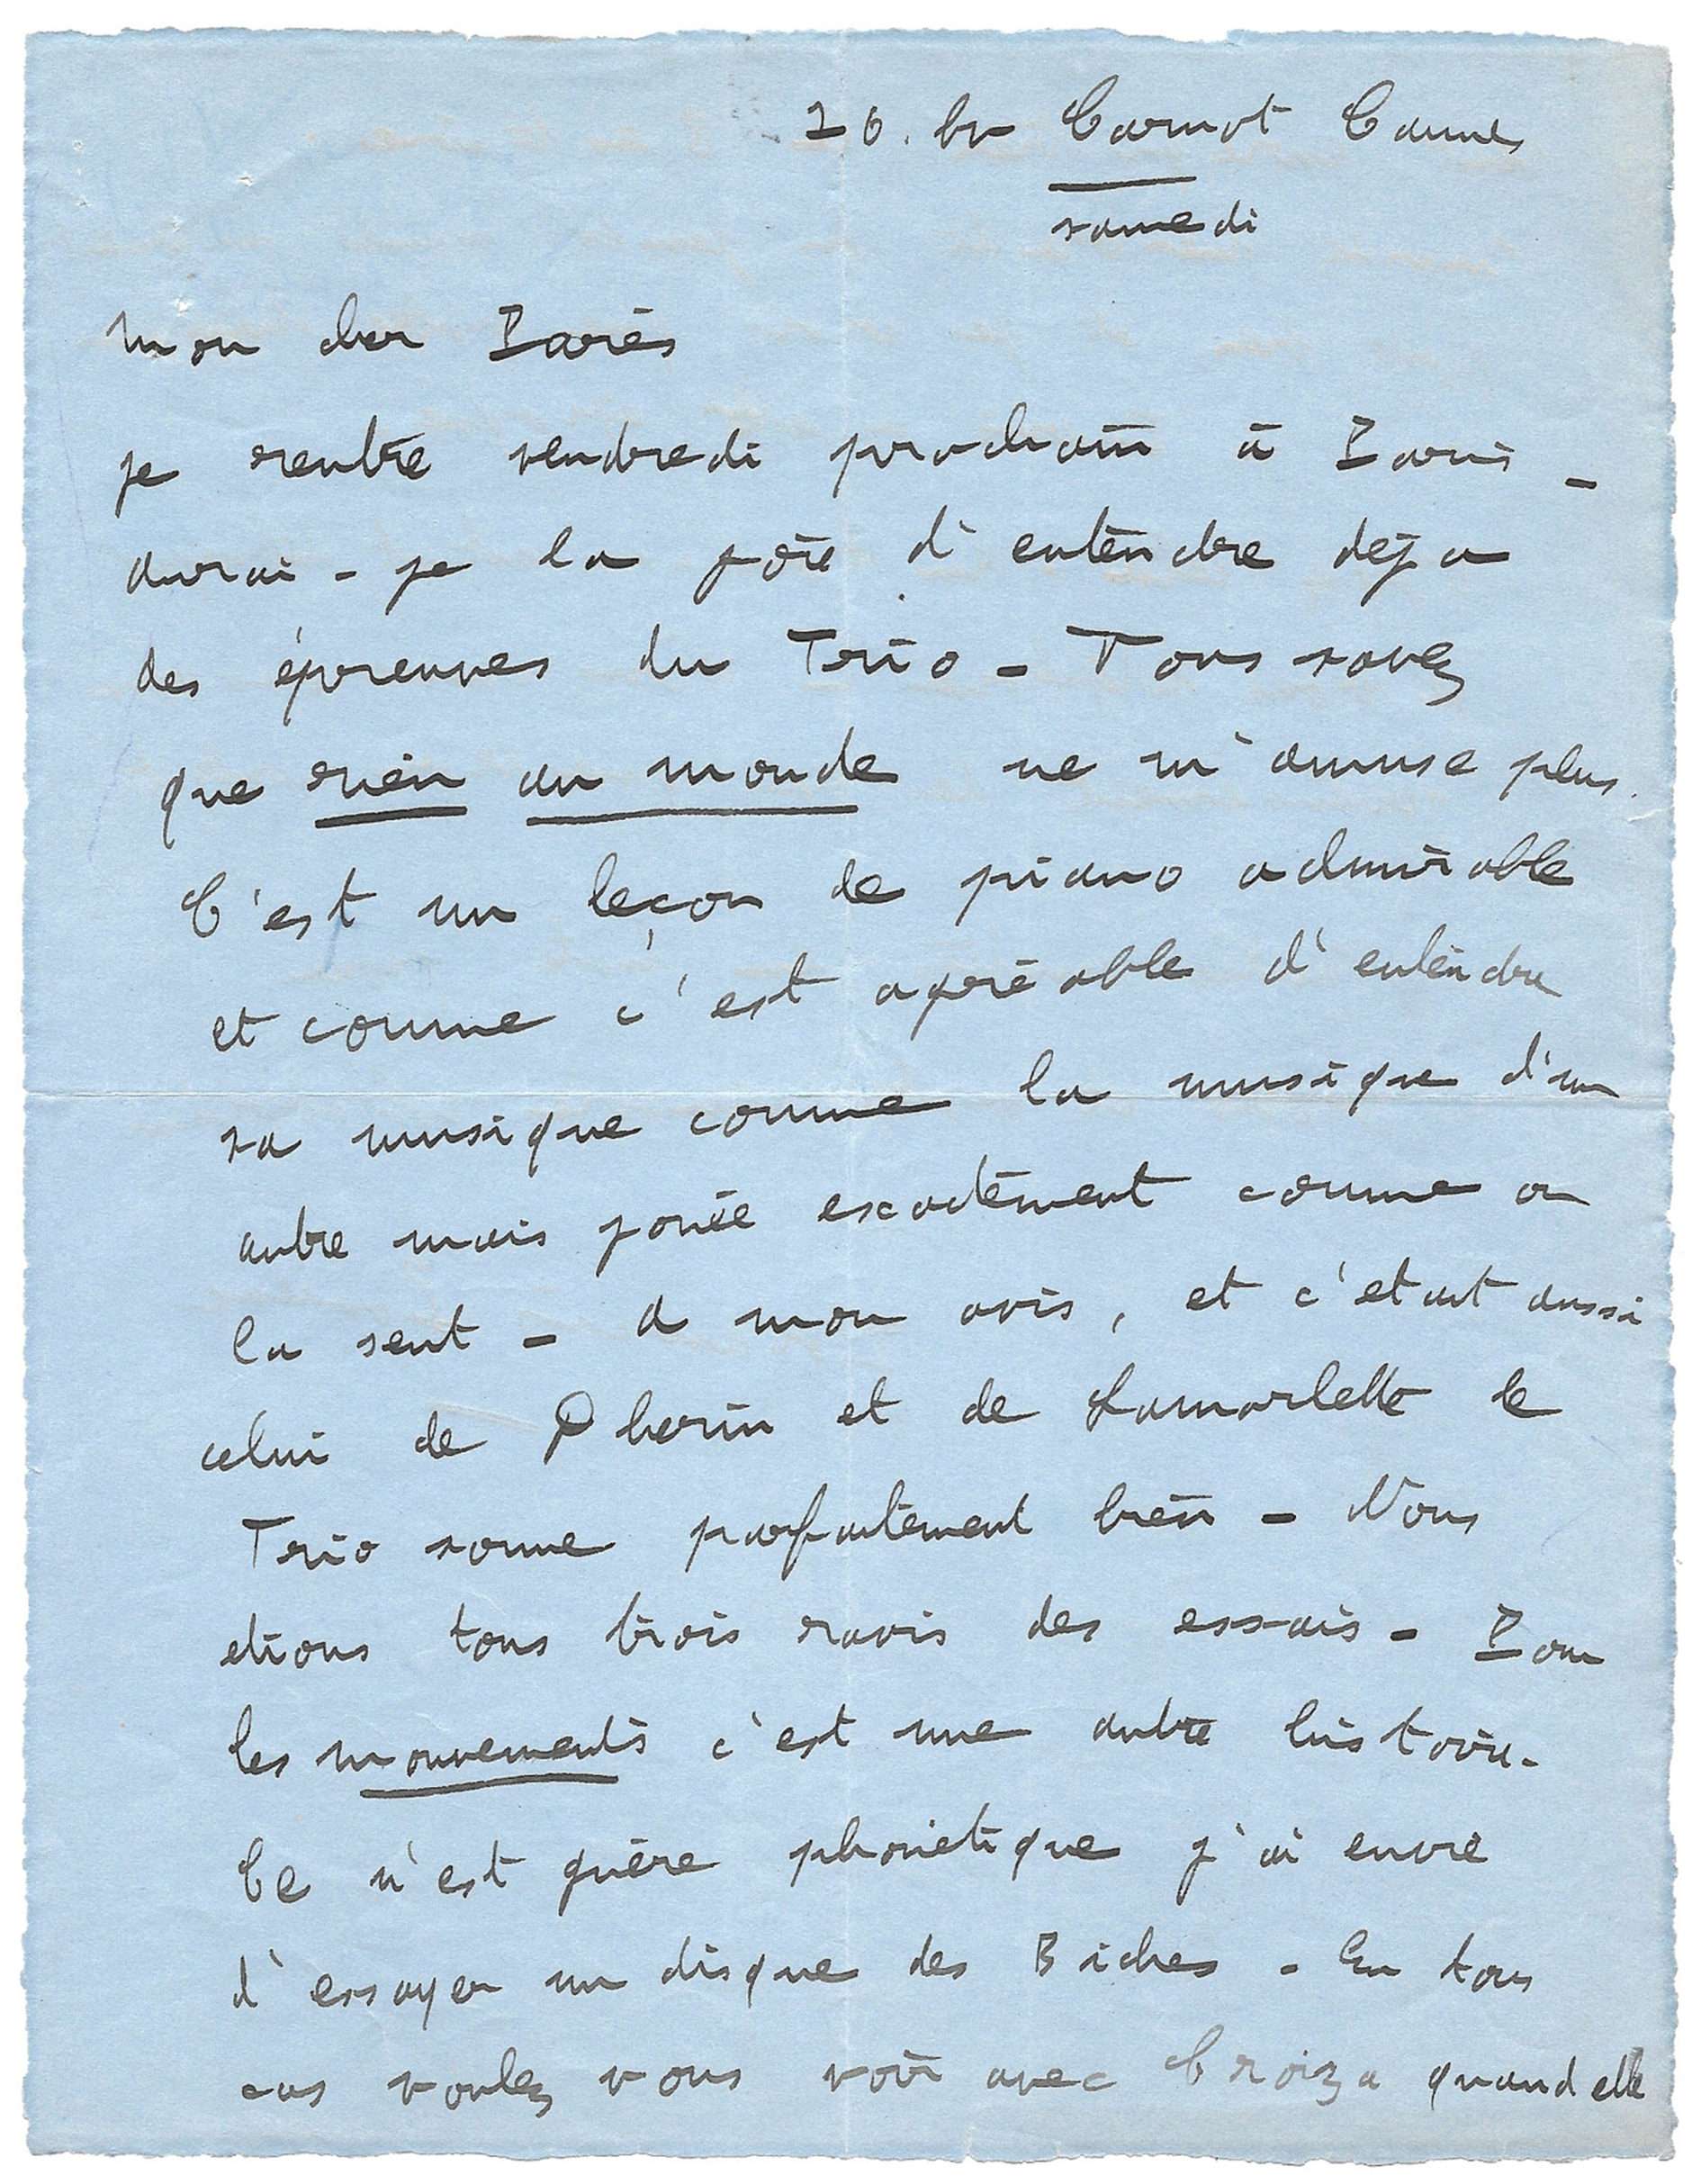 26. bv Carnot Cannes
samedi
Mon cher Parès
je rentre vendredi prochain à Paris _
aurai-je la joie d'entendre deja
des épreuves du Trio _ Vous savez
que rien au monde ne m'amuse plus.
C'est un leçon de piano admirable
et comme c'est agréable d'entendre
sa musique comme la musique d'un
autre mais jouée exactement comme on
la sent _ A mon avis, et c'etait aussi
celui de Lherin et de Lamorlette le
Trio sonne parfaitement bien _ Nous
etions tous trois ravis des essais _ Pour
les mouvements c'est une autre histoire.
Ce n'est guère phonetique j'ai envie
d'essayer un disque des Biches _ En tous
cas voulez vous voir avec Croiza quand elle